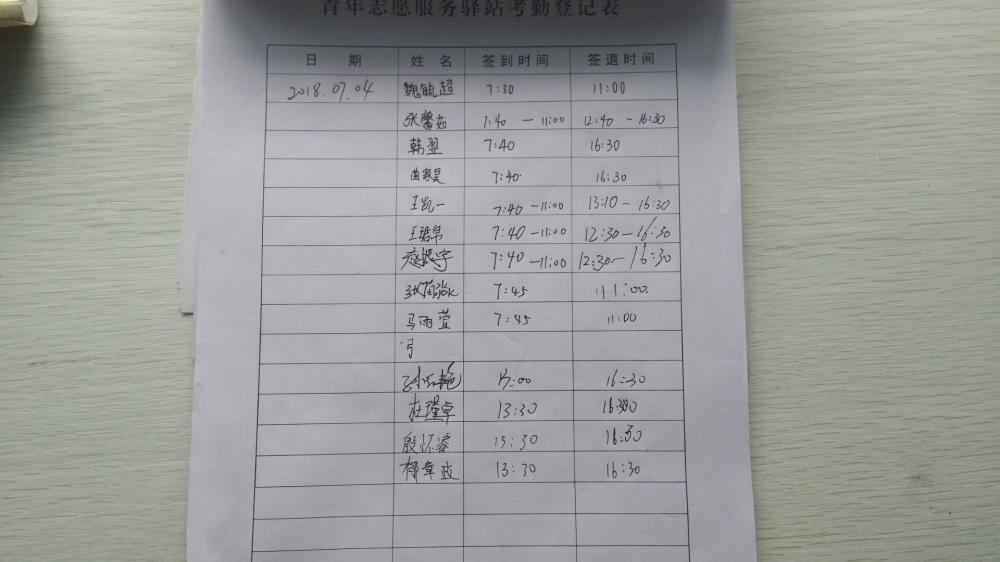 青年志愿服务驿站考勤登记表
日 期 姓 名 签到时间 签退时间
2018.07.04 魏毓超 7:30 11:00
张馨茹 7:40 - 11:00 12:40 - 16:30
韩翌 7:40 16:30
曲家昊 7:40 16:30
王凯一 7:40 - 11:00 13:10 - 16:30
王珺帛 7:40 - 11:00 12:30 - 16:30
振宇 7:40 - 11:00 12:30 - 16:30
7:45 11:00
马雨萱 7:45 11:00
弓
:00 16:30
杜瑾卓 13:30 16:30
殷怀睿 13:30 16:30
郁章政 13:30 16:30